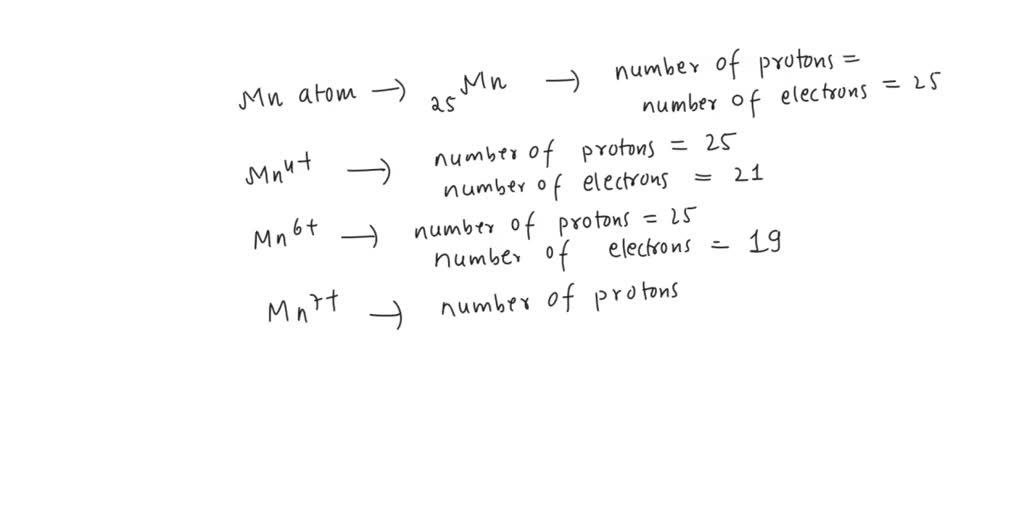 Mn atom → ₂₅Mn → number of protons =
number of electrons = 25
Mn⁴⁺ → number of protons = 25
number of electrons = 21
Mn⁶⁺ → number of protons = 25
number of electrons = 19
Mn⁷⁺ → number of protons